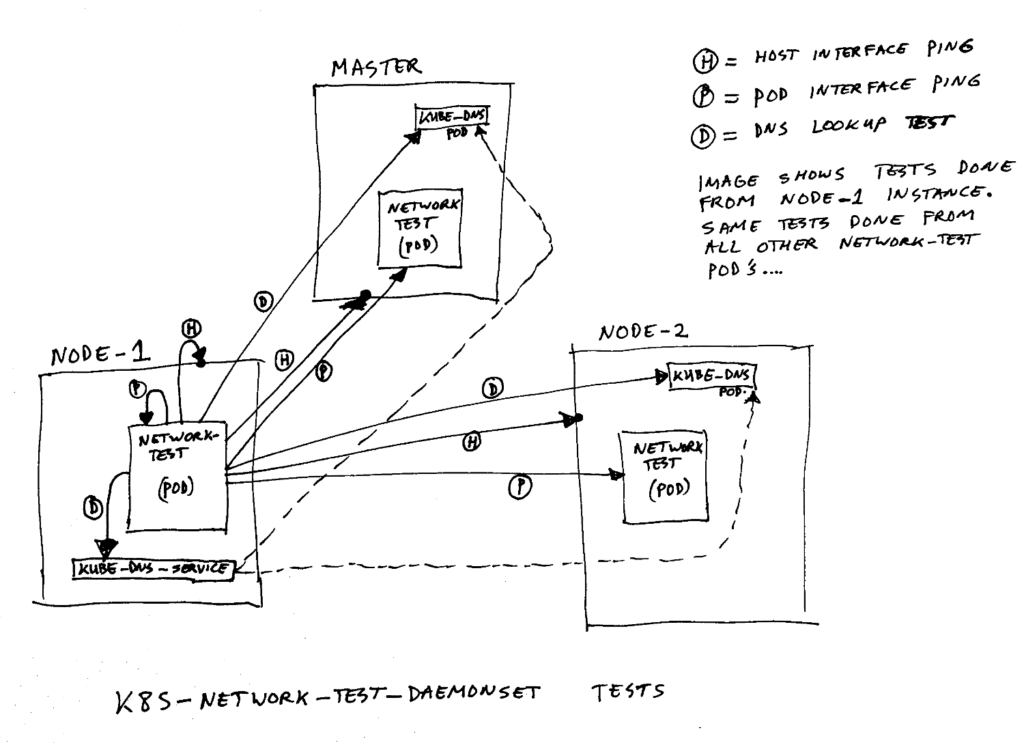 MASTER
KUBE-DNS
POD
NETWORK
TEST
(POD)
Ⓗ = HOST INTERFACE PING
Ⓟ = POD INTERFACE PING
Ⓓ = DNS LOOKUP TEST
IMAGE SHOWS TESTS DONE
FROM NODE-1 INSTANCE.
SAME TESTS DONE FROM
ALL OTHER NETWORK-TEST
POD's....
D
H
H
P
NODE-1
P
NETWORK-
TEST
(POD)
D
KUBE-DNS-SERVICE
NODE-2
D
H
P
KUBE-DNS
POD.
NETWORK
TEST
(POD)
K8S-NETWORK-TEST-DAEMONSET TESTS